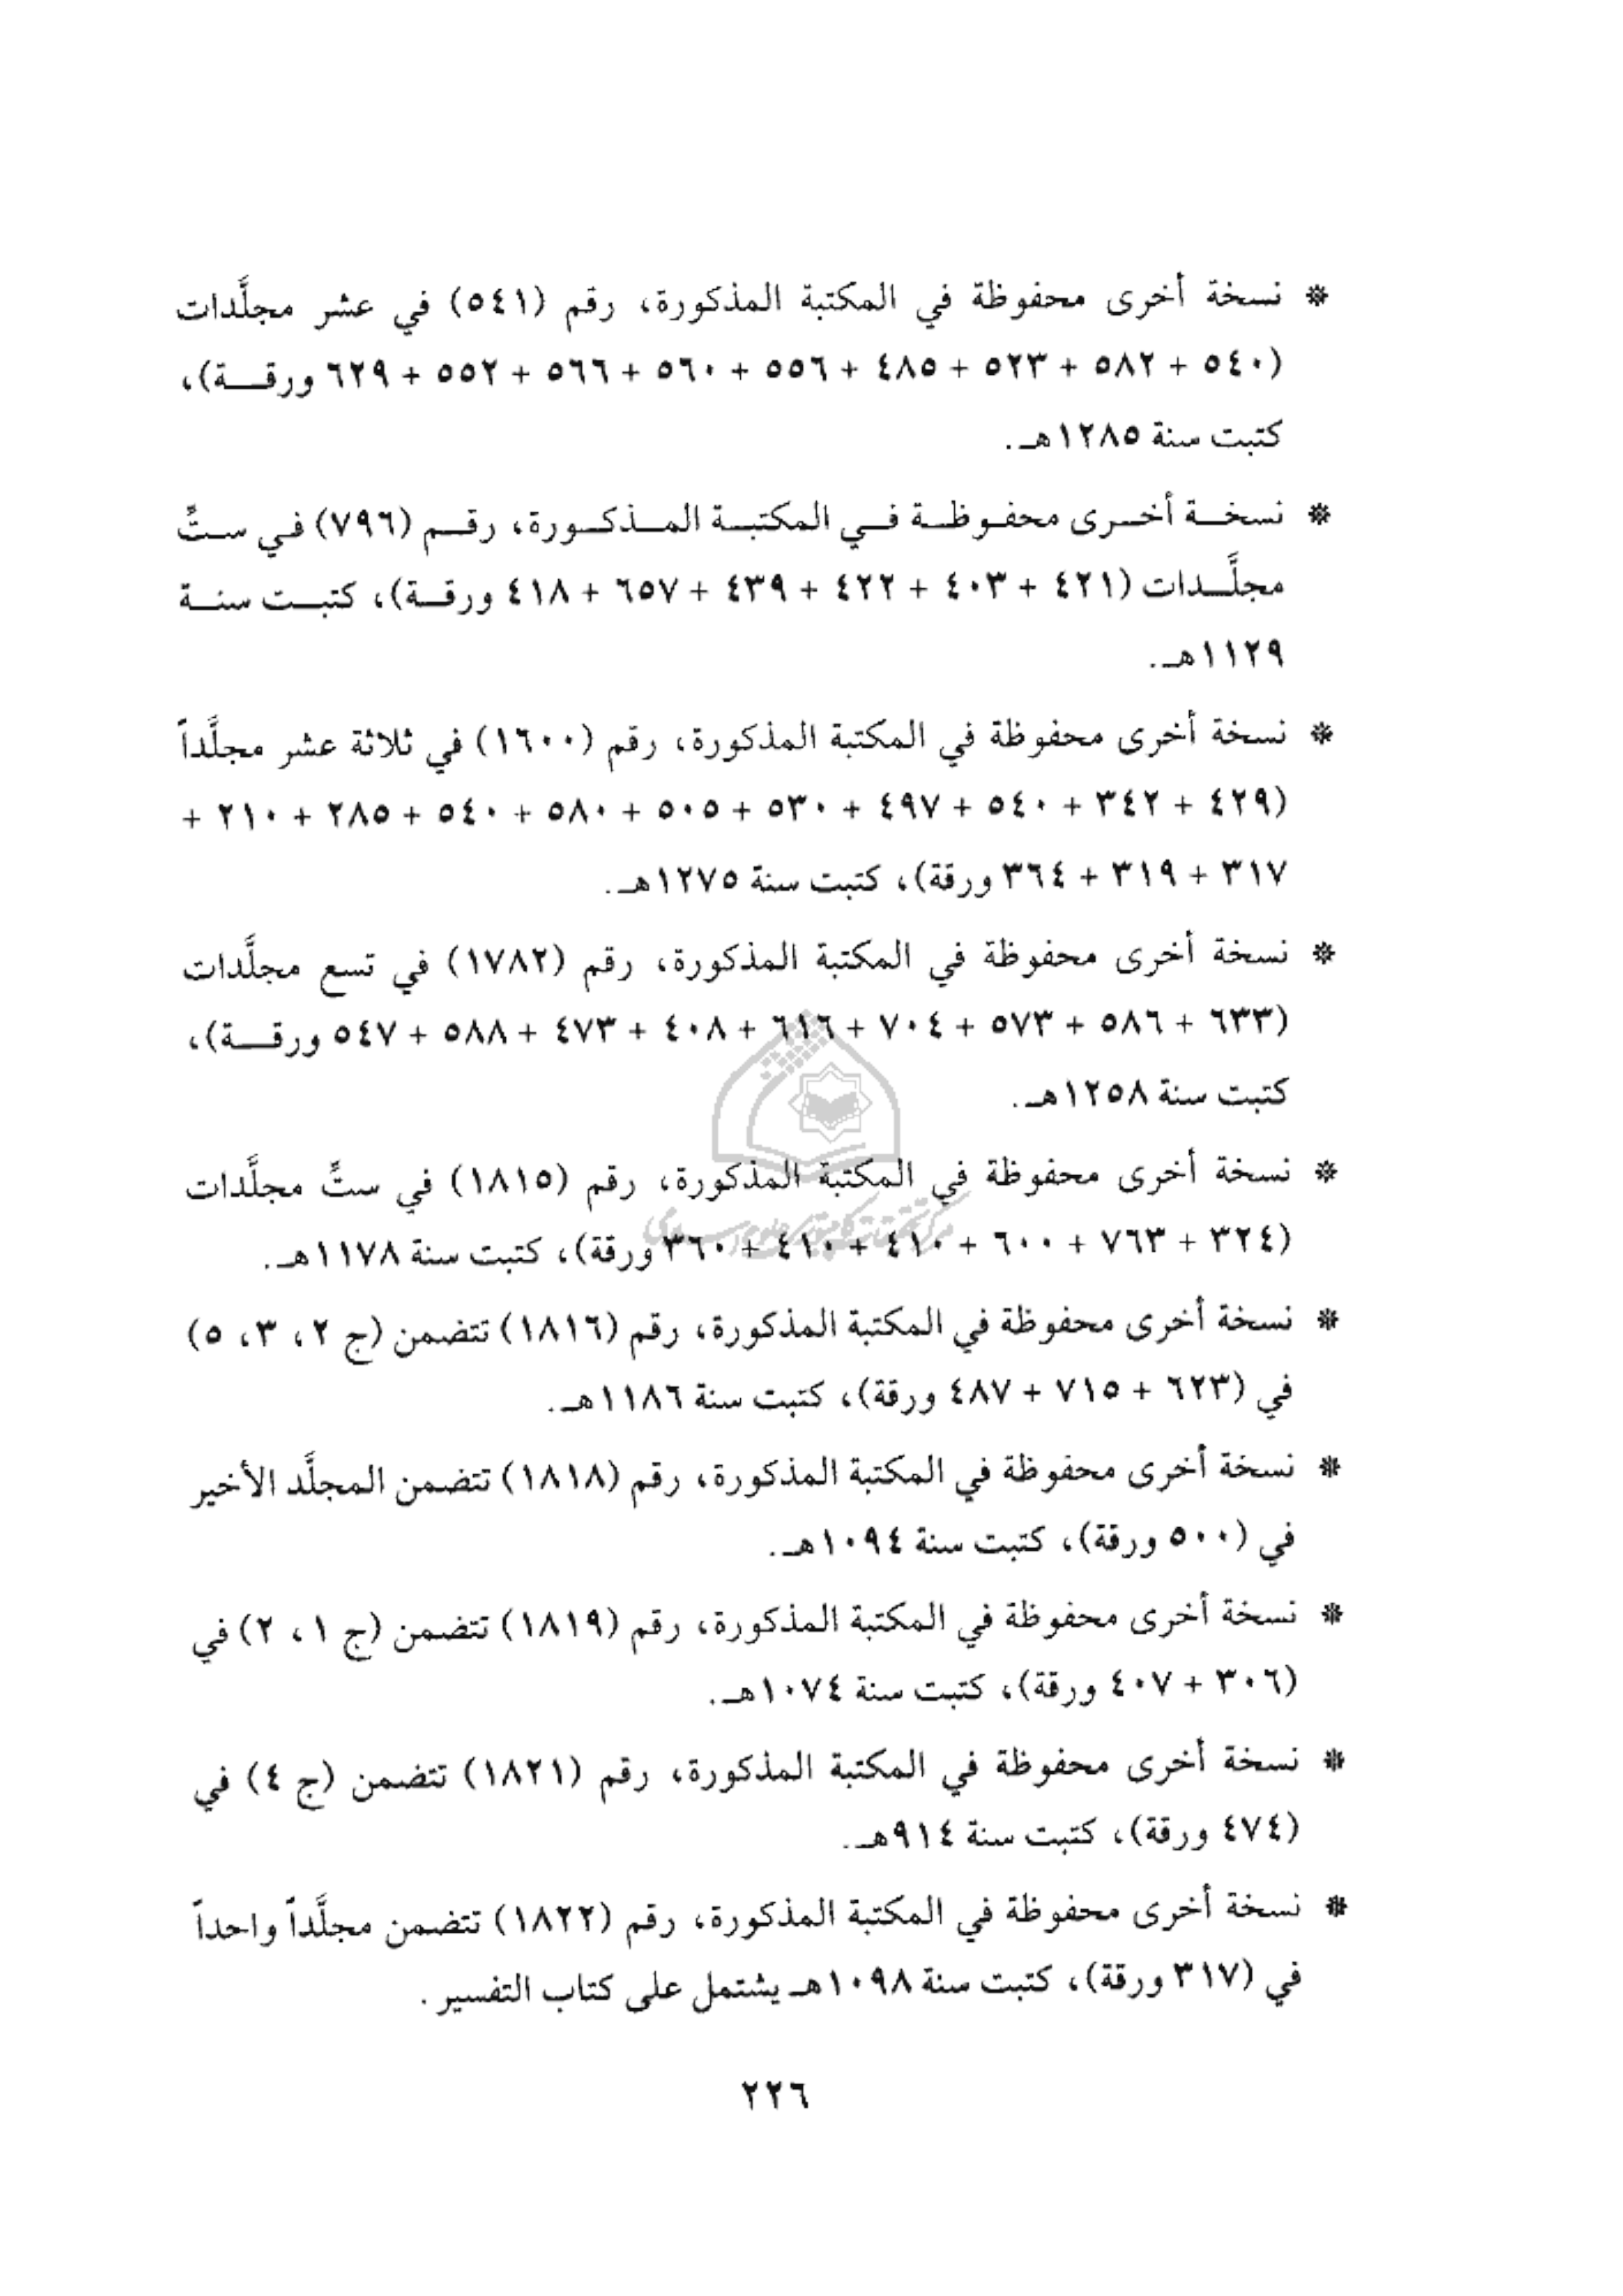 * نسخة أخرى محفوظة في المكتبة المذكورة، رقم (٥٤١) في عشر مجلَّدات
(٥٤٠ + ٥٨٢ + ٥٢٣ + ٤٨٥ + ٥٥٦ + ٥٦٠ + ٥٦٦ + ٥٥٢ + ٦٢٩ ورقـة)،
كتبت سنة ١٢٨٥هـ.
* نسخـة أخـرى محفـوظـة فـي المكتبـة المـذكـورة، رقـم (٧٩٦) فـي سـتِّ
مجلَّـدات (٤٢١ + ٤٠٣ + ٤٢٢ + ٤٣٩ + ٦٥٧ + ٤١٨ ورقـة)، كتبـت سنـة
١١٢٩هـ.
* نسخة أخرى محفوظة في المكتبة المذكورة، رقم (١٦٠٠) في ثلاثة عشر مجلَّداً
(٤٢٩ + ٣٤٢ + ٥٤٠ + ٤٩٧ + ٥٣٠ + ٥٠٥ + ٥٨٠ + ٥٤٠ + ٢٨٥ + ٢١٠ +
٣١٧ + ٣١٩ + ٣٦٤ ورقة)، كتبت سنة ١٢٧٥هـ.
* نسخة أخرى محفوظة في المكتبة المذكورة، رقم (١٧٨٢) في تسع مجلَّدات
(٦٣٣ + ٥٨٦ + ٥٧٣ + ٧٠٤ + ٦١٦ + ٤٠٨ + ٤٧٣ + ٥٨٨ + ٥٤٧ ورقـة)،
كتبت سنة ١٢٥٨هـ.
* نسخة أخرى محفوظة في المكتبة المذكورة، رقم (١٨١٥) في ستِّ مجلَّدات
(٣٢٤ + ٧٦٣ + ٦٠٠ + ٤١٠ + ٤١٠ + ٣٦٠ ورقة)، كتبت سنة ١١٧٨هـ.
* نسخة أخرى محفوظة في المكتبة المذكورة، رقم (١٨١٦) تتضمن (ج ٢، ٣، ٥)
في (٦٢٣ + ٧١٥ + ٤٨٧ ورقة)، كتبت سنة ١١٨٦هـ.
* نسخة أخرى محفوظة في المكتبة المذكورة، رقم (١٨١٨) تتضمن المجلَّد الأخير
في (٥٠٠ ورقة)، كتبت سنة ١٠٩٤هـ.
* نسخة أخرى محفوظة في المكتبة المذكورة، رقم (١٨١٩) تتضمن (ج ١، ٢) في
(٣٠٦ + ٤٠٧ ورقة)، كتبت سنة ١٠٧٤هـ.
* نسخة أخرى محفوظة في المكتبة المذكورة، رقم (١٨٢١) تتضمن (ج ٤) في
(٤٧٤ ورقة)، كتبت سنة ٩١٤هـ.
* نسخة أخرى محفوظة في المكتبة المذكورة، رقم (١٨٢٢) تتضمن مجلَّداً واحداً
في (٣١٧ ورقة)، كتبت سنة ١٠٩٨هـ يشتمل على كتاب التفسير.
٢٢٦